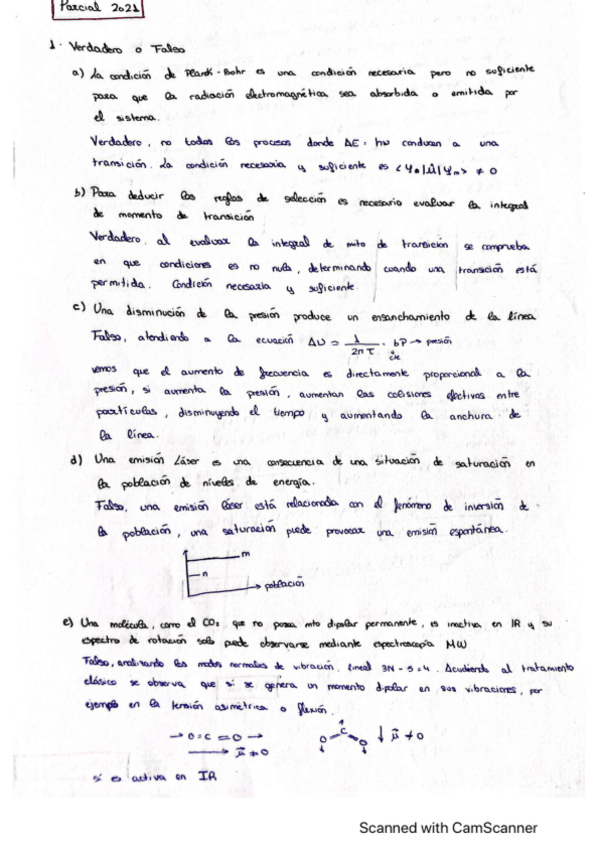 Parcial 2021
1. Verdadero o Falso
a) La condición de Planck-Bohr es una condición necesaria pero no suficiente
para que la radiación electromagnética sea absorbida o emitida por
el sistema.
Verdadero, no todos los procesos donde ΔE = hν conducen a una
transición. La condición necesaria y suficiente es <Ψn|μ̂|Ψm> ≠ 0
b) Para deducir las reglas de selección es necesario evaluar la integral
de momento de transición
Verdadero, al evaluar la integral de mto de transición se comprueba
en que condiciones es no nula, determinando cuando una transición está
permitida. Condición necesaria y suficiente.
c) Una disminución de la presión produce un ensanchamiento de la línea
Falso, atendiendo a la ecuación Δν = 1/2πτ · bP → presión
cte
vemos que el aumento de frecuencia es directamente proporcional a la
presión, si aumenta la presión, aumentan las colisiones efectivas entre
partículas, disminuyendo el tiempo y aumentando la anchura de
la línea.
d) Una emisión Láser es una consecuencia de una situación de saturación en
la población de niveles de energía.
Falso, una emisión láser está relacionada con el fenómeno de inversión de
la población, una saturación puede provocar una emisión espontánea.
m
n
población
e) Una molécula, como el CO₂ que no posea mto dipolar permanente, es inactiva en IR y su
espectro de rotación solo puede observarse mediante espectroscopía MW
Falso, analizando los modos normales de vibración, lineal 3N-5=4. Acudiendo al tratamiento
clásico se observa que sí se genera un momento dipolar en sus vibraciones, por
ejemplo en la tensión asimétrica o flexión.
→ O=C=O → O C O ↓ μ⃗ ≠ 0
→ μ⃗ ≠ 0
sí es activa en IR
Scanned with CamScanner